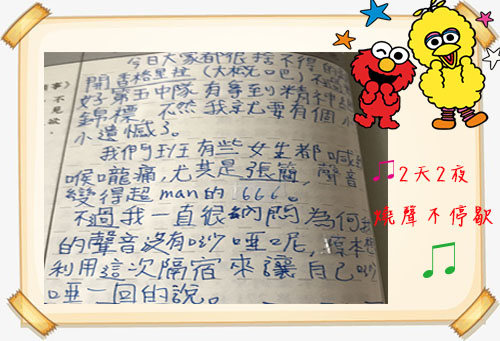 今日大家都很捨不得的
開香格里拉(大概吧)不
好第五中隊有拿到精神
錦標,不然我就要有個小
小遺憾了。
我們班有些女生都喊
喉嚨痛,尤其是張簡,聲音
變得超man的,666。
不過我一直很納悶為何我
的聲音沒有吵啞呢,原本想
利用這次隔宿來讓自己吵
啞一回的說。
2天2夜
燒聲不停歇